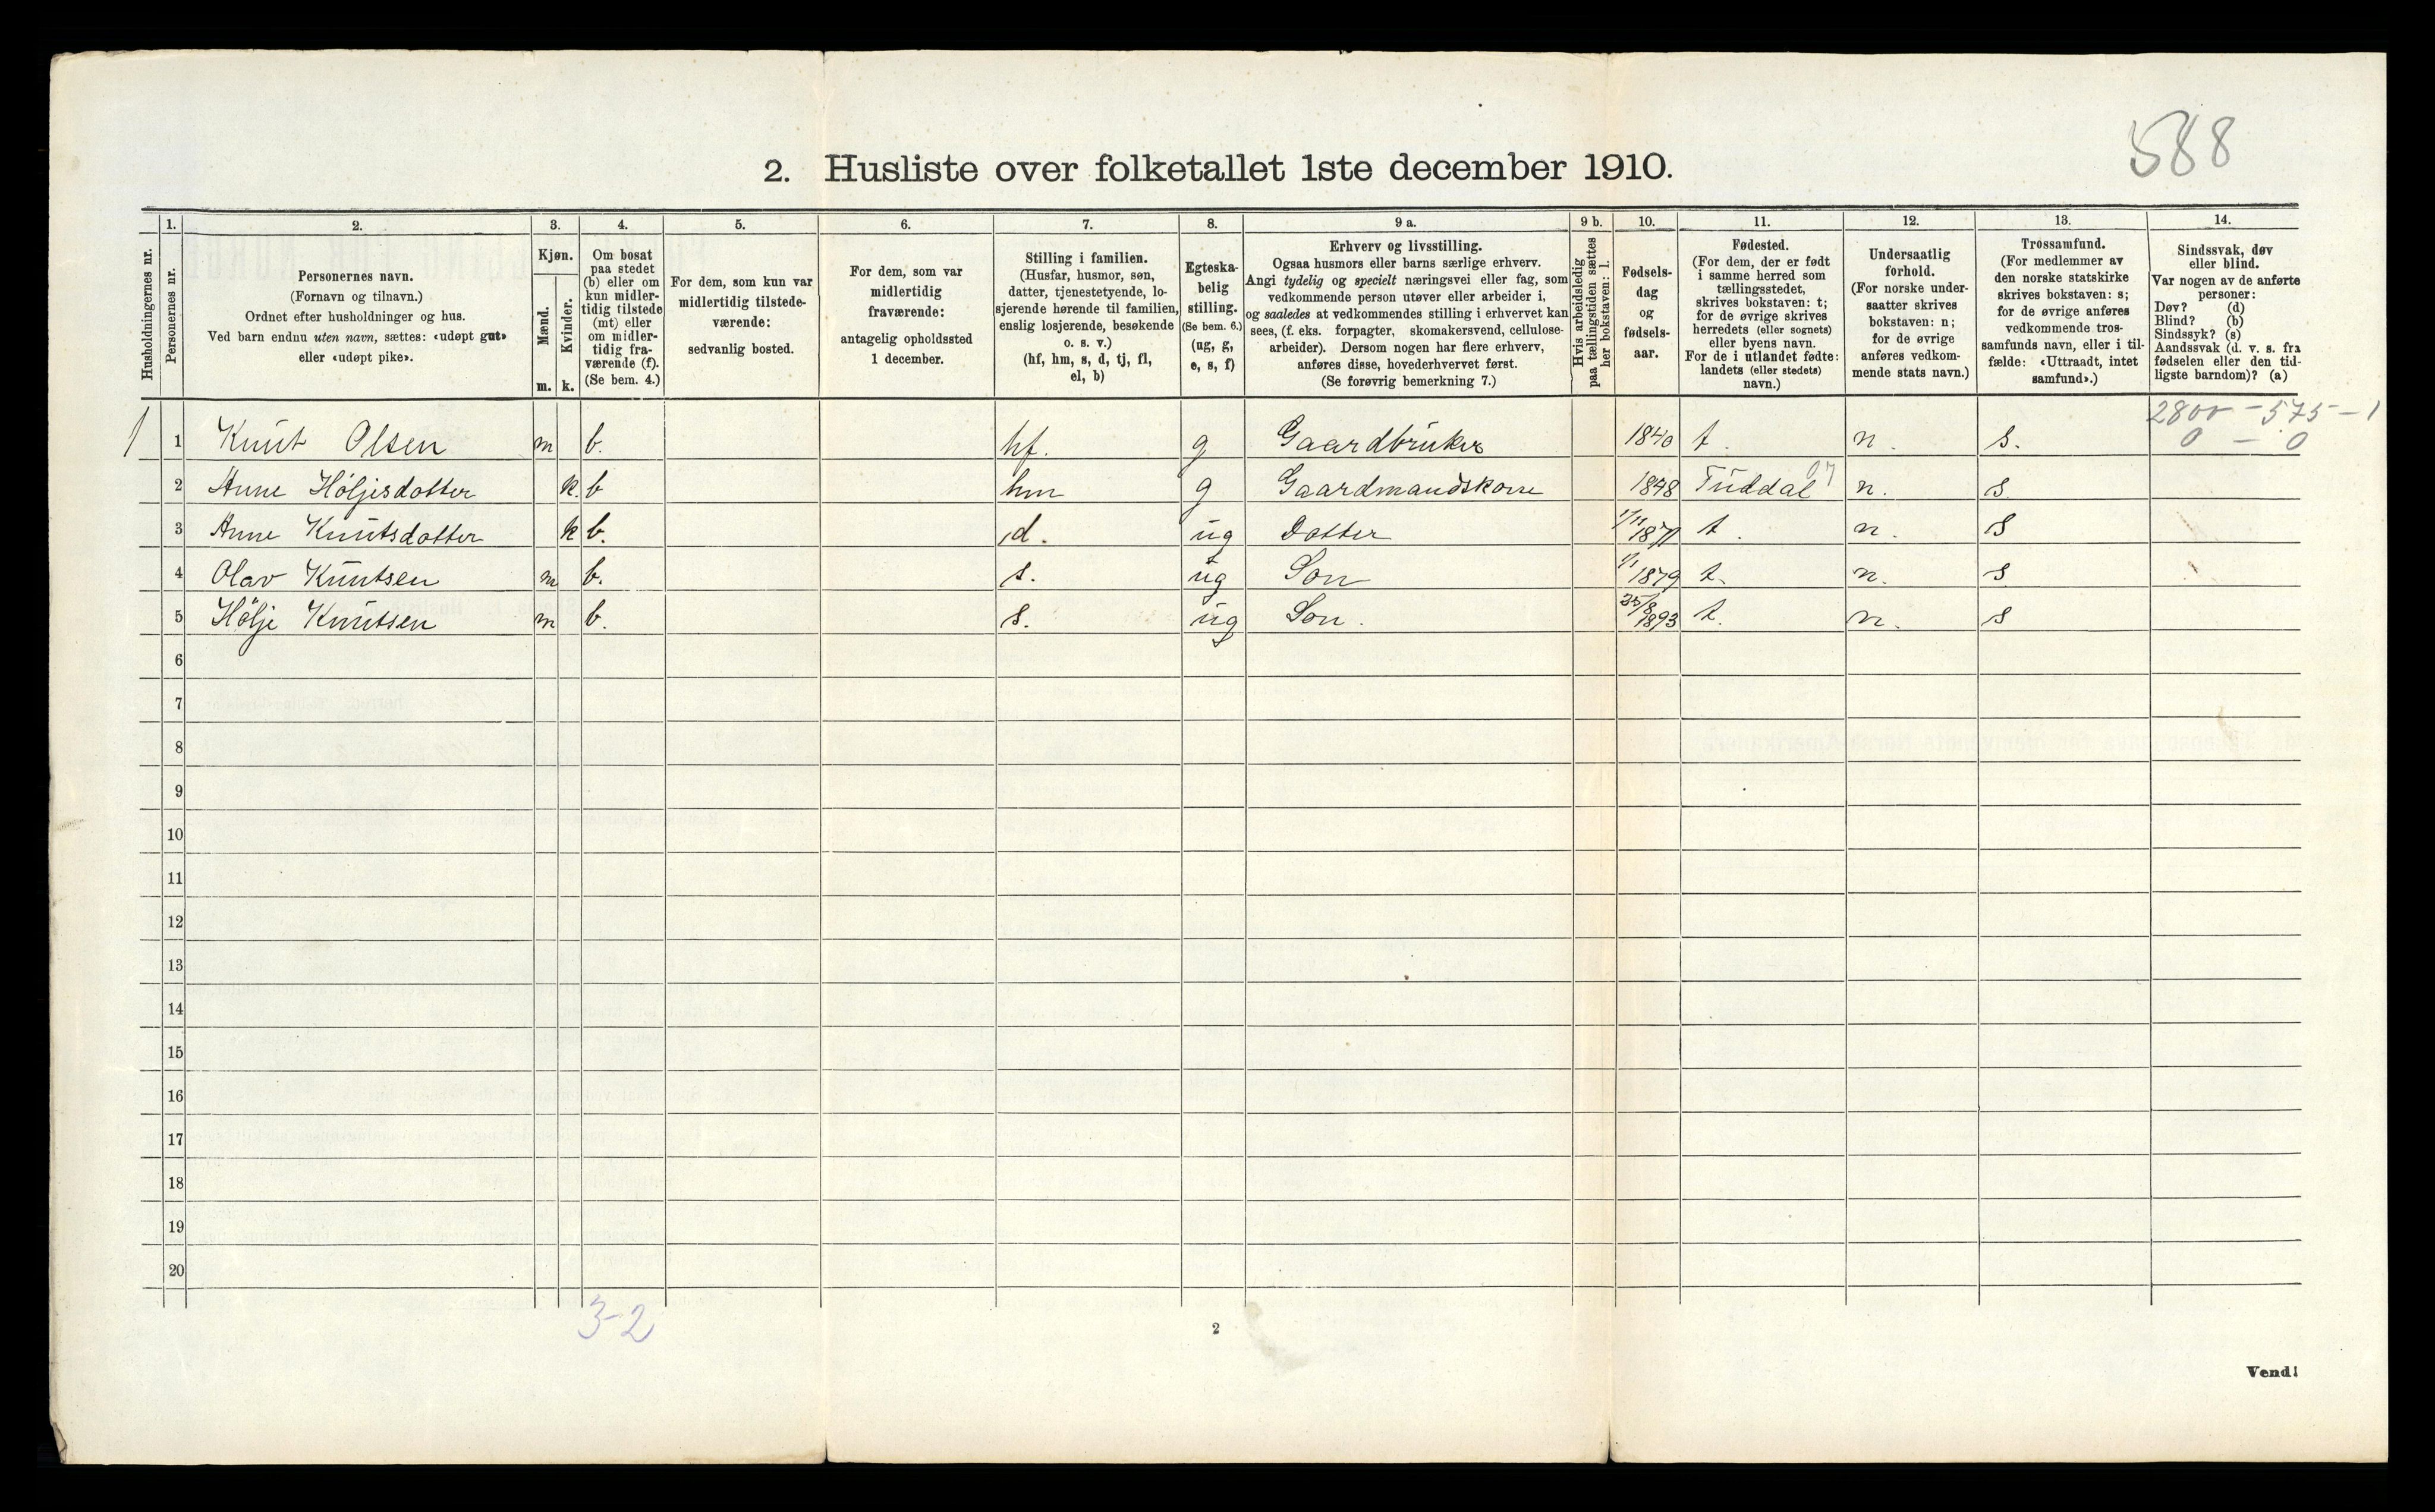 588
2. Husliste over folketallet 1ste december 1910.
Husholdningernes nr.
1.
Personernes nr.
2.
Personernes navn.
(Fornavn og tilnavn.)
Ordnet efter husholdninger og hus.
Ved barn endnu uten navn, sættes: «udøpt gut»
eller «udøpt pike».
3.
Kjøn.
Mænd.
Kvinder.
m. k.
4.
Om bosat
paa stedet
(b) eller om
kun midler-
tidig tilstede
(mt) eller
om midler-
tidig fra-
værende (f).
(Se bem. 4.)
5.
For dem, som kun var
midlertidig tilstede-
værende:
sedvanlig bosted.
6.
For dem, som var
midlertidig
fraværende:
antagelig opholdssted
1 december.
7.
Stilling i familien.
(Husfar, husmor, søn,
datter, tjenestetyende, lo-
sjerende hørende til familien,
enslig losjerende, besøkende
o. s. v.)
(hf, hm, s, d, tj, fl,
el, b)
8.
Egteska-
belig
stilling.
(Se bem. 6.)
(ug, g,
e, s, f)
9 a.
Erhverv og livsstilling.
Ogsaa husmors eller barns særlige erhverv.
Angi tydelig og specielt næringsvei eller fag, som
vedkommende person utøver eller arbeider i,
og saaledes at vedkommendes stilling i erhvervet kan
sees, (f. eks. forpagter, skomakersvend, cellulose-
arbeider). Dersom nogen har flere erhverv,
anføres disse, hovederhvervet først.
(Se forøvrig bemerkning 7.)
9 b.
Hvis arbeidsledig
paa tællingstiden sættes
her bokstaven: l.
10.
Fødsels-
dag
og
fødsels-
aar.
11.
Fødested.
(For dem, der er født
i samme herred som
tællingsstedet,
skrives bokstaven: t;
for de øvrige skrives
herredets (eller sognets)
eller byens navn.
For de i utlandet fødte:
landets (eller stedets)
navn.)
12.
Undersaatlig
forhold.
(For norske under-
saatter skrives
bokstaven: n;
for de øvrige
anføres vedkom-
mende stats navn.)
13.
Trossamfund.
(For medlemmer av
den norske statskirke
skrives bokstaven: s;
for de øvrige anføres
vedkommende tros-
samfunds navn, eller i til-
fælde: «Uttraadt, intet
samfund».)
14.
Sindssvak, døv
eller blind.
Var nogen av de anførte
personer:
Døv? (d)
Blind? (b)
Sindssyk? (s)
Aandssvak (d. v. s. fra
fødselen eller den tid-
ligste barndom)? (a)
2800 - 575 - 1
0 - 0
1 1 Knut Olsen m b. hf. g Gaardbruker 1840 t. n. s.
2 Anne Höljesdotter k. b hm g Gaardmandskone 1848 Tuddal 07 n. s
3 Anne Knutsdotter k b. d. ug Dotter 1/11 t. n. s
4 Olav Knutsen m b. s. ug Son 1/1 1879 t. n. s
5 Hölje Knutsen m b. s. ug Son. 25/8 1893 t. n. s
6
7
8
9
10
11
12
13
14
15
16
17
18
19
20
3-2
2
Vend!